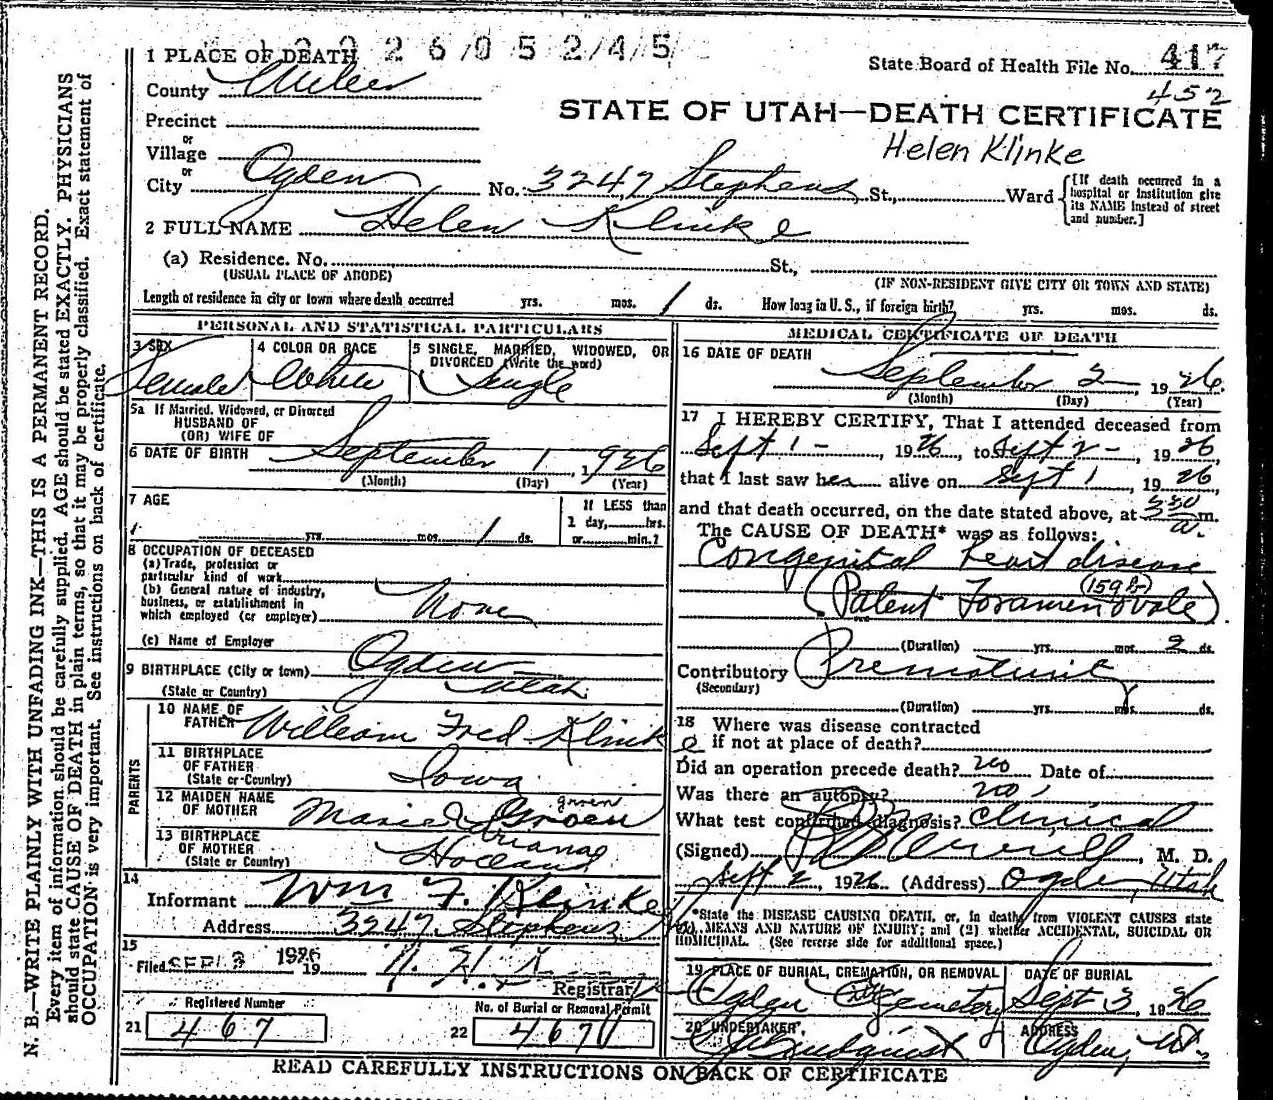 N. B.—WRITE PLAINLY WITH UNFADING INK—THIS IS A PERMANENT RECORD.
Every item of information should be carefully supplied. AGE should be stated EXACTLY. PHYSICIANS
should state CAUSE OF DEATH in plain terms, so that it may be properly classified. Exact statement of
OCCUPATION is very important. See instructions on back of certificate.
1 PLACE OF DEATH
State Board of Health File No. 417
452
County
STATE OF UTAH—DEATH CERTIFICATE
Helen Klinke
Precinct
or
Village
or
City Ogden No. 3247 Stephens St., Ward
[If death occurred in a
hospital or institution give
its NAME instead of street
and number.]
2 FULL NAME Helen Klinke
(a) Residence. No. St.,
(USUAL PLACE OF ABODE) (IF NON-RESIDENT GIVE CITY OR TOWN AND STATE)
Length of residence in city or town where death occurred yrs. mos. 1 ds. How long in U. S., if foreign birth? yrs. mos. ds.
PERSONAL AND STATISTICAL PARTICULARS
3 SEX
Female
4 COLOR OR RACE
White
5 SINGLE, MARRIED, WIDOWED, OR
DIVORCED (Write the word)
Single
5a If Married, Widowed, or Divorced
HUSBAND OF
(OR) WIFE OF
6 DATE OF BIRTH September 1, 1926
(Month) (Day) (Year)
7 AGE
If LESS than
1 day, hrs.
yrs. mos. 1 ds. or min.?
8 OCCUPATION OF DECEASED
(a) Trade, profession or
particular kind of work
(b) General nature of industry,
business, or establishment in
which employed (or employer) None
(c) Name of Employer
9 BIRTHPLACE (City or town) Ogden
(State or Country) Utah
PARENTS
10 NAME OF
FATHER William Fred Klinke
11 BIRTHPLACE
OF FATHER
(State or Country) Iowa
12 MAIDEN NAME
OF MOTHER Maria Adriana Groen
groen
13 BIRTHPLACE
OF MOTHER
(State or Country) Holland
14
Informant Wm F. Klinke
Address 3247 Stephens
15
Filed SEP 3 1926 19
Registrar
Registered Number
21 467
No. of Burial or Removal Permit
22 467V
MEDICAL CERTIFICATE OF DEATH
16 DATE OF DEATH
September 2 1926.
(Month) (Day) (Year)
17 I HEREBY CERTIFY, That I attended deceased from
Sept 1 -, 1926, to Sept 2 -, 1926,
that I last saw her alive on Sept 1, 1926,
and that death occurred, on the date stated above, at 330 a. m.
The CAUSE OF DEATH* was as follows:
Congenital heart disease
(159 b)
(Patent Foramen Ovale)
(Duration) yrs. mos. 2 ds.
Contributory Prematurity
(Secondary)
(Duration) yrs. mos. ds.
18 Where was disease contracted
if not at place of death?
Did an operation precede death? no Date of
Was there an autopsy? no
What test confirmed diagnosis? Clinical
(Signed) M. D.
Sept 2, 1926 (Address) Ogden, Utah
*State the DISEASE CAUSING DEATH, or, in deaths from VIOLENT CAUSES state
(1), MEANS AND NATURE OF INJURY; and (2) whether ACCIDENTAL, SUICIDAL OR
HOMICIDAL. (See reverse side for additional space.)
19 PLACE OF BURIAL, CREMATION, OR REMOVAL
Ogden City Cemetery
DATE OF BURIAL
Sept 3, 1926
20 UNDERTAKER,
Lindquist
ADDRESS
Ogden, Ut.
READ CAREFULLY INSTRUCTIONS ON BACK OF CERTIFICATE